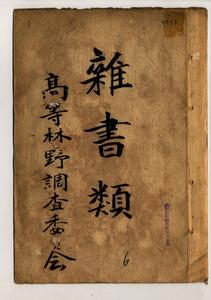 雜書類
高等林野調査委員会
6